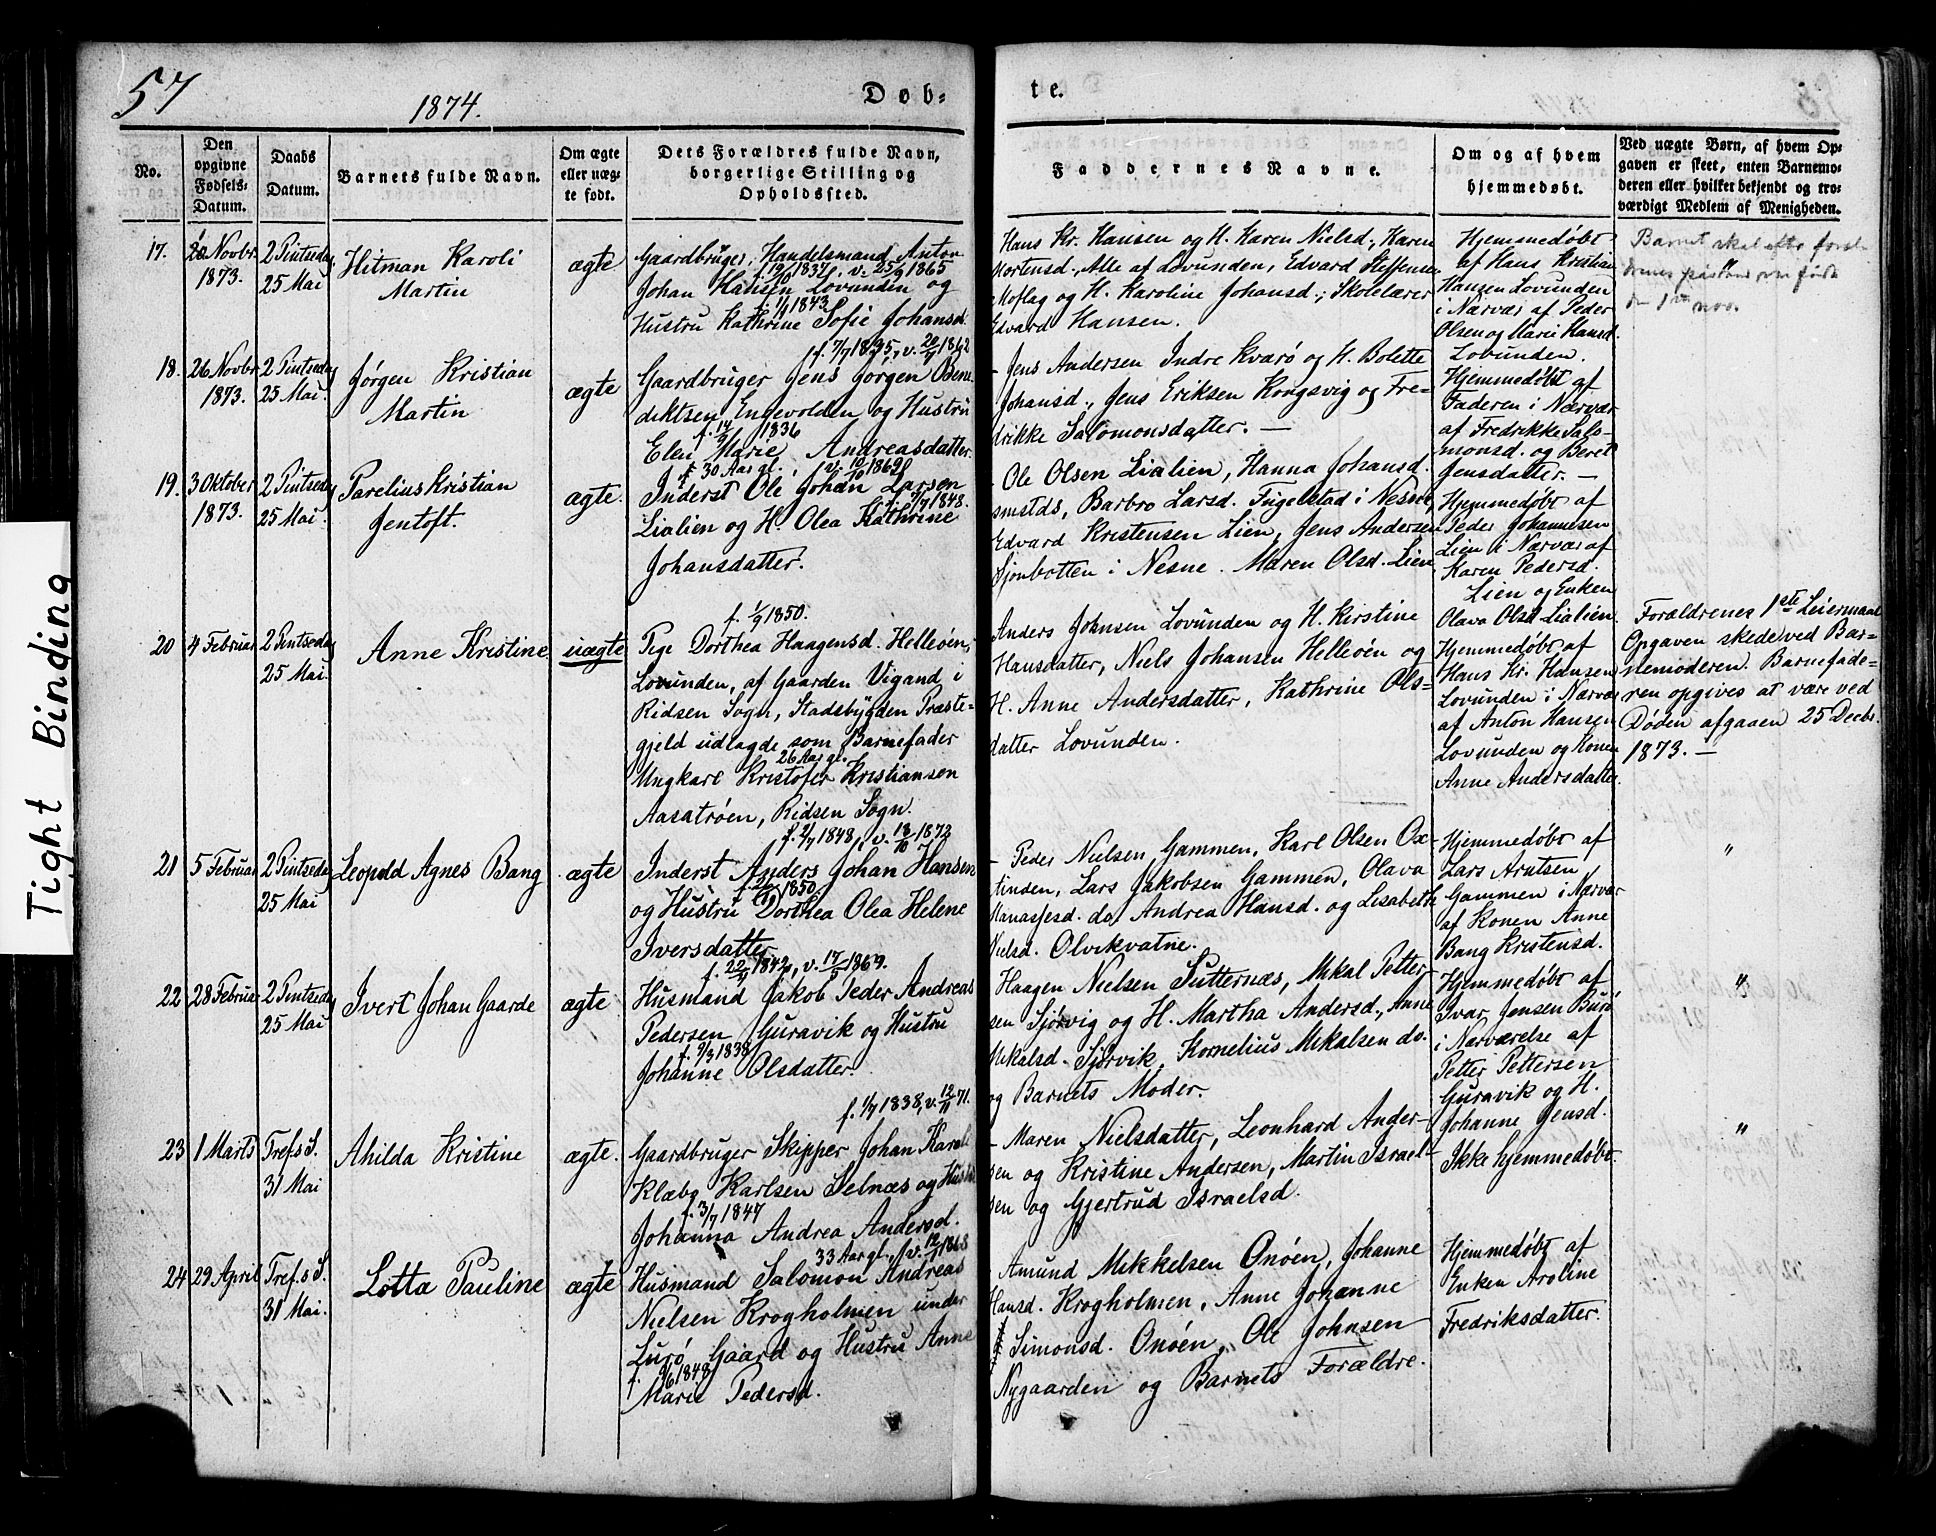 57
1874.
Døb-
te.
Tight Binding
No.
Den opgivne Fødsels-Datum.
Daabs Datum.
Barnets fulde Navn.
Om ægte eller uæg-te født.
Dets Forældres fulde Navn, borgerlige Stilling og Opholdssted.
Faddernes Navne.
Om og af hvem hjemmedøbt.
Ved uægte Børn, af hvem Op-
gaven er skeet, enten Barnemo-
deren eller hvilket bekjendt og tro-
værdigt Medlem af Menigheden.
17.
Novbr.
1873.
2 Pintsedag
25 Mai
Hitman Karoli
Martin
ægte
Gaardbruger, Handelsmand Anton
Johan Hansen Lovunden og
f. 1/9 1843
Hustru Kathrine Sofie Johansd.
Hans Kr. Hansen og H. Karen Nielsd., Karen
Mortensd., Alle af Lovunden, Edvard Steffensen
Moflag og H. Karoline Johansd.; Skolelærer
Edvard Hansen.
Hjemmedøbt
af Hans Kristian
Hansen Lovunden
i Nærvær af Peder
Olsen og Marie Hansd.
Lovunden.
Barnet skal efter foræl-
drenes paastand være født
den 1ste nov.
18.
26 Novbr
1873.
2 Pintsedag
25 Mai.
Jørgen Kristian
Martin
ægte
f. 7/7 1835, v. 20/7 1862
Gaardbruger Jens Jørgen Bene-
diktsen Engevolden og Hustru
f. 14/9 1836
Elen Marie Andreasdatter.
- Jens Andersen Indre Kvarø og H. Bolette
Johansd., Jens Eriksen Kongsvig og Fre-
drikke Salomonsdatter. —
Hjemmedøbt af
Faderen i Nærvær
af Fredrikke Salo-
monsd. og Beret
Jensdatter. —
19.
3 Oktober
1873.
2 Pintsedag
25 Mai.
Parelius Kristian
Jentoft.
ægte.
f. 30 Aar gl., v. 10/10 1869
Inderst Ole Johan Larsen
1848.
Lialien og H. Olea Kathrine
Johansdatter.
- Ole Olsen Lialien, Hanna Johansd.
smstds, Barbro Larsd. Fugelstad i Nesne,
Edvard Kristensen Lien, Jens Andersen
Sjonbotten i Nesne. Maren Olsd. Lien
Hjemmedøbt af
Peder Johannesen
Lien i Nærvær af
Karen Pedersd.
Lien og Enken
Olava Olsd Lialien.
20
4 Februar
2 Pintsedag
25 Mai.
Anne Kristine
uægte
f. 1/9 1850.
Pige Dorthea Haagensd. Helleøen,
Lovunden, af Gaarden Vigand i
Ridsen Sogn, Stadsbygden Præste-
gjeld udlagde som Barnefader
26 Aar gl.
Ungkarl Kristofer Kristiansen
Aasatrøen, Ridsen Sogn.
Anders Johnsen Lovunden og H. Kirstine
Hansdatter, Niels Johansen Helleøen og
H. Anne Andersdatter, Kathrine Ols-
datter Lovunden.
Hjemmedøbt af
Hans Kr. Hansen
Lovunden i Nærvær
af Anton Hansen
Lovunden og Konen
Anne Andersdatter.
Forældrenes 1ste Leiermaal
Opgaven skede ved Bar-
nemoderen. Barnefade-
ren opgives at være ved
Døden afgaaen 25 Decbr.
1873. —
21
5 Februar
2 Pintsedag
25 Mai
Leopold Agnes Bang
ægte
f. 2/7 1848, v. 18/10 1872
Inderst Anders Johan Hansen
1850
og Hustru Dorthea Olea Helene
Iversdatter
- Peder Nielsen Gammen, Karl Olsen Ox-
tinden, Lars Jakobsen Gammen, Olava
Manassesd. do, Andrea Hansd. og Lisabeth
Nielsd. Olvikvatne.
Hjemmedøbt af
Lars Arntsen
Gammen i Nærvær
af Konen Anne
Bang Kristensd.
"
22
28 Februar
2 Pintsedag
25 Mai
Ivert Johan Gaarde
ægte
f. 22/11 1842, v. 17/ 1869.
Husmand Jakob Peder Andreas
Pedersen Guravik og Hustru
f. 9/3 1838
Johanne Olsdatter.
Haagen Nielsen Sutternæs, Mikal Petter-
sen Sjørvig og H. Martha Andersd., Anne
Mikalsd. Sjørvik, Kornelius Mikalsen do.
og Barnets Moder.
Hjemmedøbt af
Ivar Jensen Burø
i Nærværelse af
Petter Pettersen
Guravik og H.
Johanne Jensd.
"
23
1 Marts
Tref. S.
31 Mai
Ahilda Kristine
ægte.
f. 1/7 1838, v. 12/11 71.
Gaardbruger Skipper Johan
Klæbo Karlsen Selnæs og Hustru
f. 3/7 1847
Johanna Andrea Andersd.
- Maren Nielsdatter, Leonhard Ander-
sen og Kristine Andersen, Martin Israel-
sen og Gjertrud Israelsd.
Ikke hjemmedøbt
"
24
29 April
Tref. S.
31 Mai.
Lotta Pauline
ægte
33 Aar gl., v. 12/ 1868
Husmand Salomon Andreas
Nielsen Krogholmen under
Lurø Gaard og Hustru Anne
1848
Marie Pedersd.
Amund Mikkelsen Onøen, Johanne
Hansd. Krogholmen, Anne Johanne
Simonsd. Onøen, Ole Johnsen
Nygaarden og Barnets Forældre.
Hjemmedøbt af
Enken Aroline
Fredriksdatter.